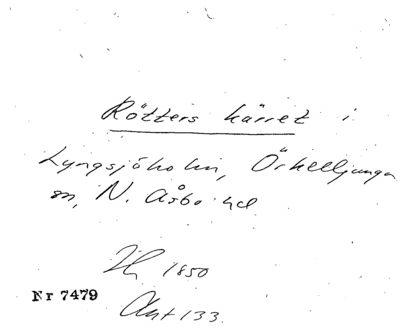 Rötters kärret i
Lyngsjöholm, Örkelljunga
sn, N. Åsbo hd
1850
Nr 7479
Akt 133.